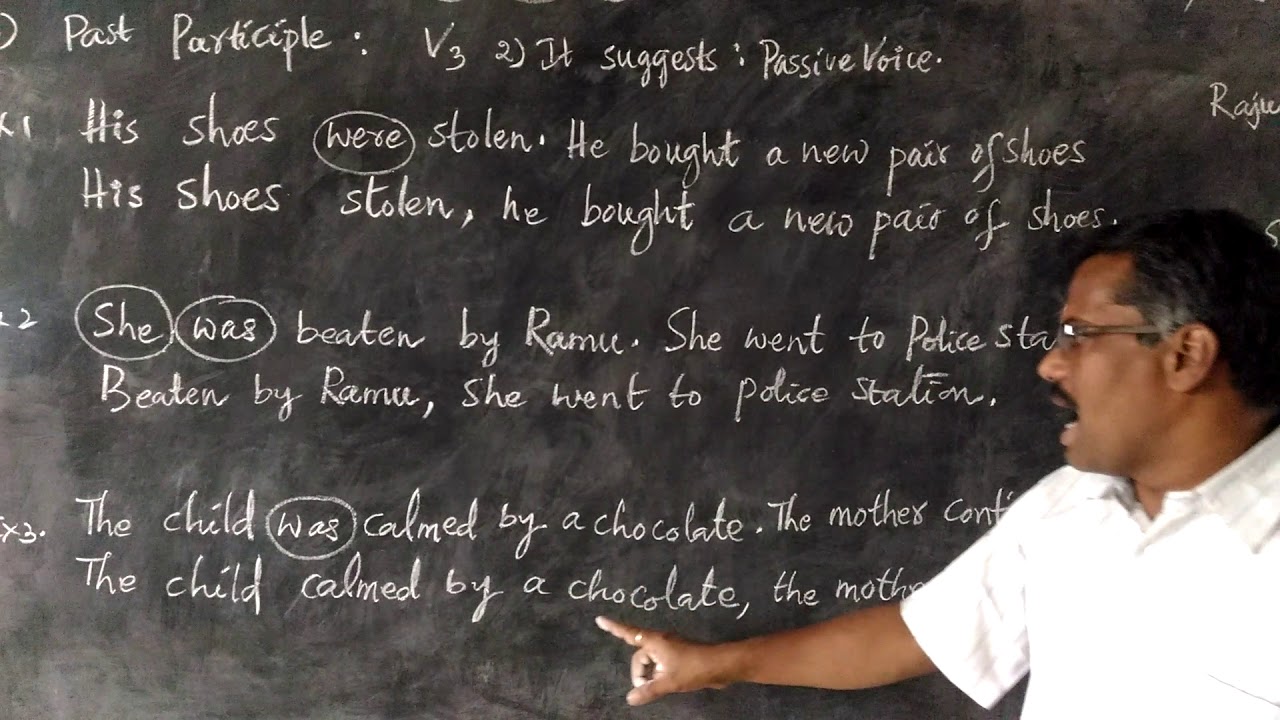 ) Past Participle : V3 2) It suggests : Passive Voice.
Raju
x1 His shoes were stolen. He bought a new pair of shoes
His shoes stolen, he bought a new pair of shoes.
2 She was beaten by Ramu. She went to Police sta
Beaten by Ramu, She went to police station.
Ex3. The child was calmed by a chocolate. The mother conti
The child calmed by a chocolate, the mothe